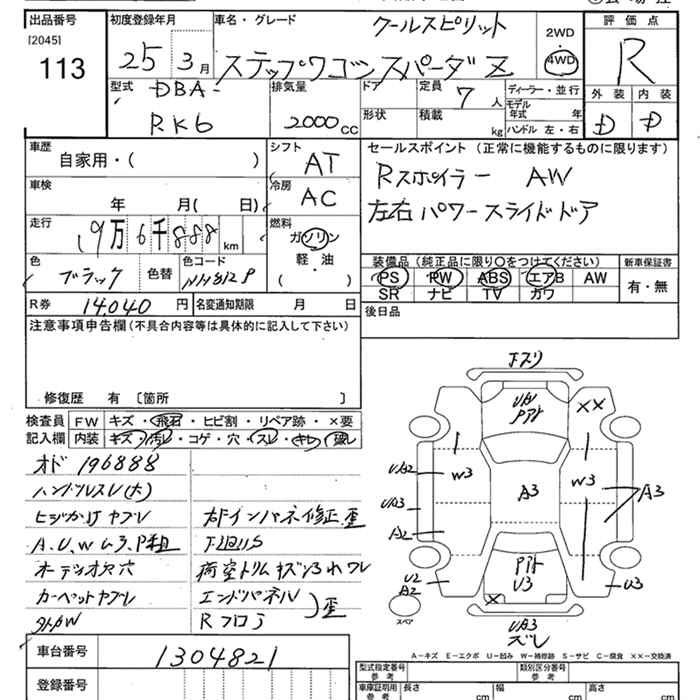 出品番号 初度登録年月 車名・グレード クールスピリット 2WD 評価点
[2045]
113 25 3月 ステップワゴンスパーダ Z 4WD R
型式 DBA- 排気量 ドア 定員 7 人 ディーラー・並行 外装 内装
RK6 2000cc 形状 積載 kg モデル年式 年
ハンドル 左・右 D D
車歴 シフト セールスポイント (正常に機能するものに限ります)
自家用・( ) AT Rスポイラー AW
車検 冷房 左右パワースライドドア
年 月( 日) AC
走行 燃料
19万 6千 888 km ガソリン
装備品(純正品に限り○をつけてください) 新車保証書
色 色コード 軽・油 PS PW ABS エアB AW 有・無
ブラック 色替 NH812P ( ) SR ナビ TV カワ
R券 14,040 円 名変通知期限 月 日 後日品
注意事項申告欄(不具合内容等は具体的に記入して下さい)
修復歴 有 [箇所 ]
検査員 FW キズ・飛石・ヒビ割・リペア跡・×要
記入欄 内装 キズ・汚レ・コゲ・穴・スレ・キレ・
オド 196888
ハンドルスレ(大)
ヒジかけ ヤブレ
オーディオ穴
カーペットヤブレ
エンドパネル 歪
Rフロア
下スリ
XX
W3 W3
A3 A3
UA2
UA3
A2
U2
A2
U3
U3
X
UA3
ズレ
スペア
A-キズ E-エクボ U-凹み W-補修跡 S-サビ C-腐食 XX-交換済
車台番号 1304821
登録番号
型式指定番号 参考 類別区分番号 参考
車庫証明用 参考 長さ cm 幅 cm 高さ cm